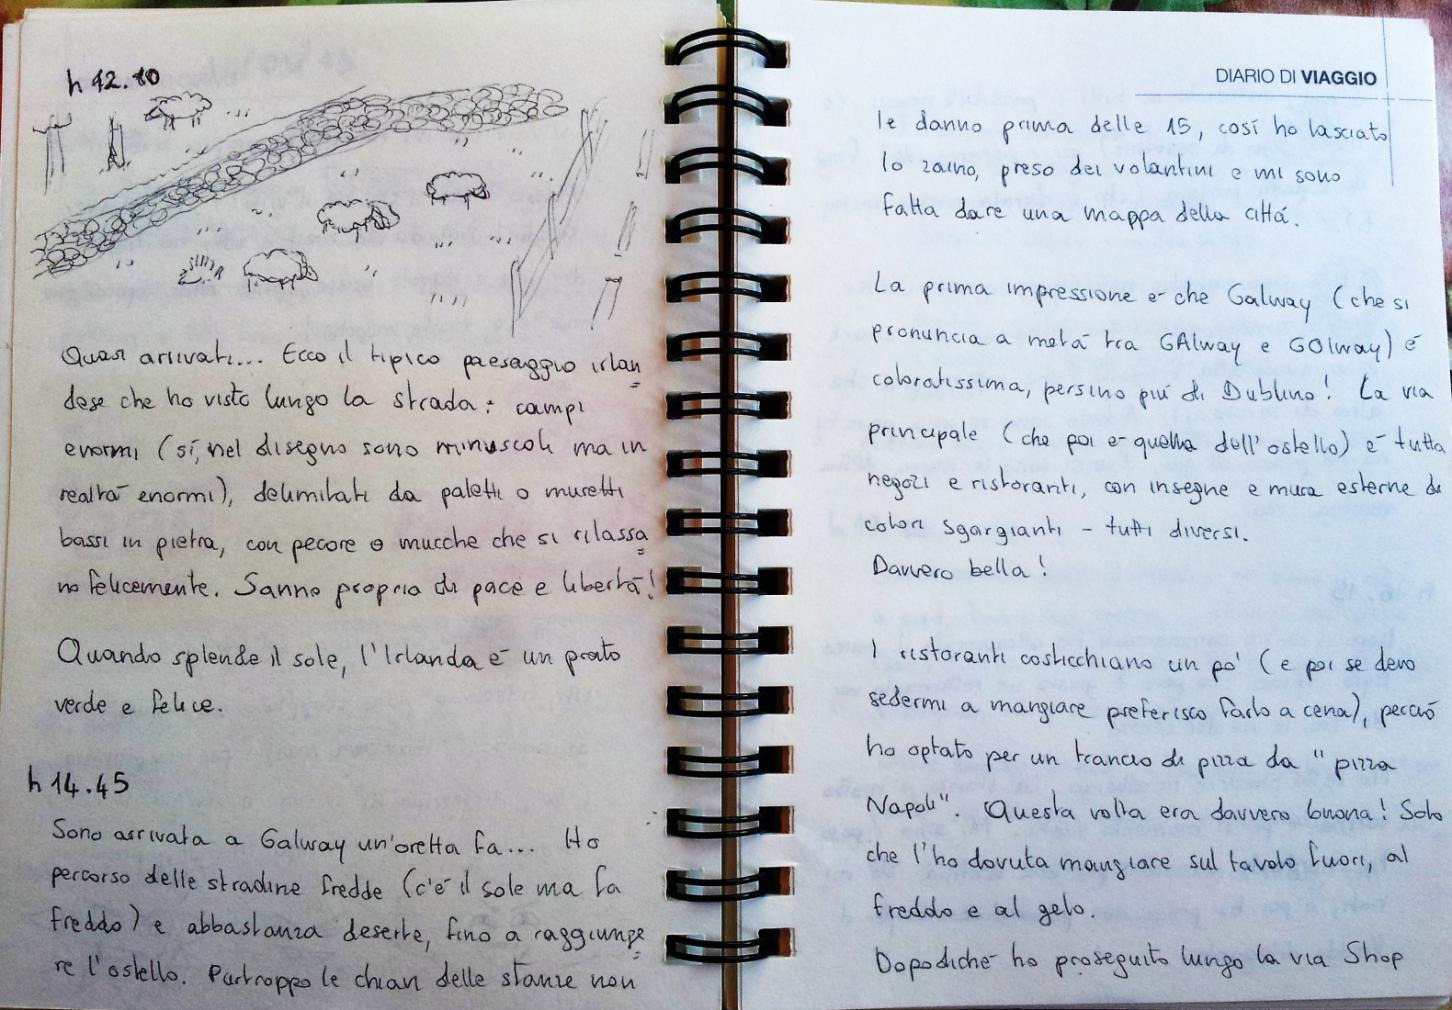 h 12.10
Quasi arrivati... Ecco il tipico paesaggio irlan
dese che ho visto lungo la strada: campi
enormi (sí, nel disegno sono minuscoli ma in
realtá enormi), delimitati da paletti o muretti
bassi in pietra, con pecore o mucche che si rilassa
no felicemente. Sanno proprio di pace e libertá!
Quando splende il sole, l'Irlanda é un prato
verde e felice.
h 14.45
Sono arrivata a Galway un'oretta fa... Ho
percorso delle stradine fredde (c'é il sole ma fa
freddo) e abbastanza deserte, fino a raggiunge
re l'ostello. Purtroppo le chiavi delle stanze non
DIARIO DI VIAGGIO
le danno prima delle 15, cosí ho lasciato
lo zaino, preso dei volantini e mi sono
fatta dare una mappa della cittá.
La prima impressione é che Galway (che si
pronuncia a metá tra GAlway e GOlway) é
coloratissima, persino piú di Dublino! La via
principale (che poi é quella dell'ostello) é tutta
negozi e ristoranti, con insegne e mura esterne di
colori sgargianti - tutti diversi.
Davvero bella!
I ristoranti costicchiano un po' (e poi se devo
sedermi a mangiare preferisco farlo a cena), perció
ho optato per un trancio di pizza da "pizza
Napoli". Questa volta era davvero buona! Solo
che l'ho dovuta mangiare sul tavolo fuori, al
freddo e al gelo.
Dopodiché ho proseguito lungo la via Shop